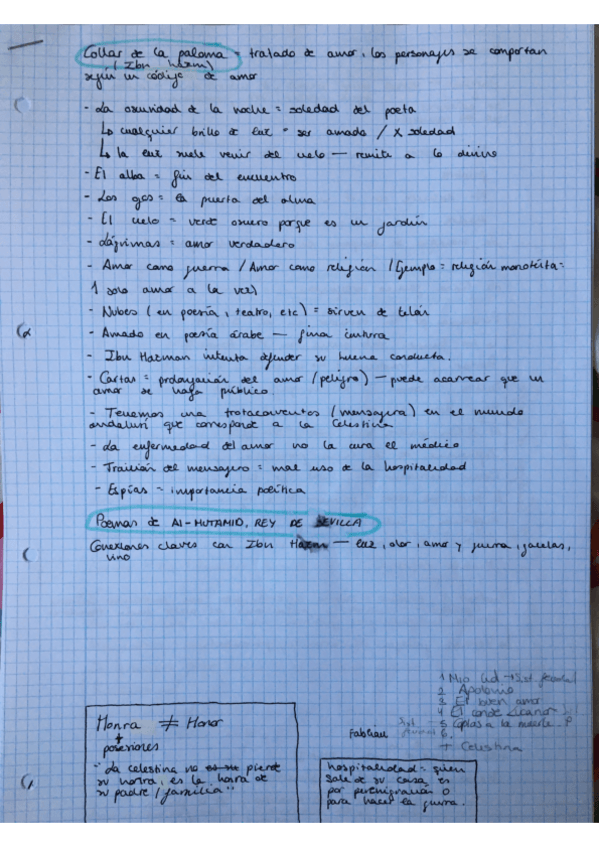 Collar de la paloma - tratado de amor, los personajes se comportan
(Ibn Hazm)
según un código de amor
- La oscuridad de la noche = soledad del poeta
↳ cualquier brillo de luz = ser amado / X soledad
↳ la luz suele venir del cielo — remite a lo divino
- El alba = fin del encuentro
- Los ojos = la puerta del alma
- El cielo = verde oscuro porque es un jardín
- Lágrimas = amor verdadero
- Amor como guerra / Amor como religión (Ejemplo = religión monoteísta =
1 solo amor a la vez)
- Nubes (en poesía, teatro, etc) = sirven de telón
- Amado en poesía árabe — fina cintura
- Ibn Hazman intenta defender su buena conducta.
- Cartas = prolongación del amor (peligro) — puede acarrear que un
amor se haga público
- Tenemos una trotaconventos (mensajera) en el mundo
andalusí que corresponde a la Celestina
- La enfermedad del amor no la cura el médico
- Traición del mensajero = mal uso de la hospitalidad
- Espías - importancia política
Poemas de Al-MUTAMID, REY DE SEVILLA
Conexiones claves con Ibn Hazm — luz, olor, amor y guerra, gacelas,
vino
1 Mio Cid →
2. Apolonio
3 El buen amor
4 El conde Lucanor
5 Coplas a la muerte. P
Fabliau 6.
+ Celestina
Honra ≠ Honor
+
posesiones
"La celestina no pierde
su honra, es la honra de
su padre / familia"
hospitalidad = quien
sale de su casa es
por peregrinación o
para hacer la guerra.